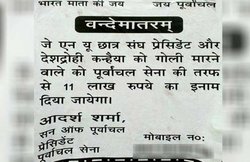 भारत माता की जय जय पूर्वांचल
वन्देमातरम्
जे एन यू छात्र संघ प्रेसिडेंट और
देशद्रोही कन्हैया को गोली मारने
वाले को पूर्वांचल सेना की तरफ
से 11 लाख रुपये का इनाम
दिया जायेगा।
आदर्श शर्मा,
सन ऑफ पूर्वांचल
प्रेसीडेंट
पूर्वांचल सेना
मोबाइल न०: